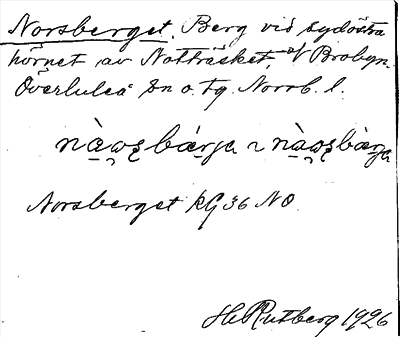 Norsberget. Berg vid sydöstra
hörnet av Notträsket, Brobyn.
Överluleå sn o. tg. Norrb. l.
Norsberget KG 36 NO.
H. Rutberg 1926